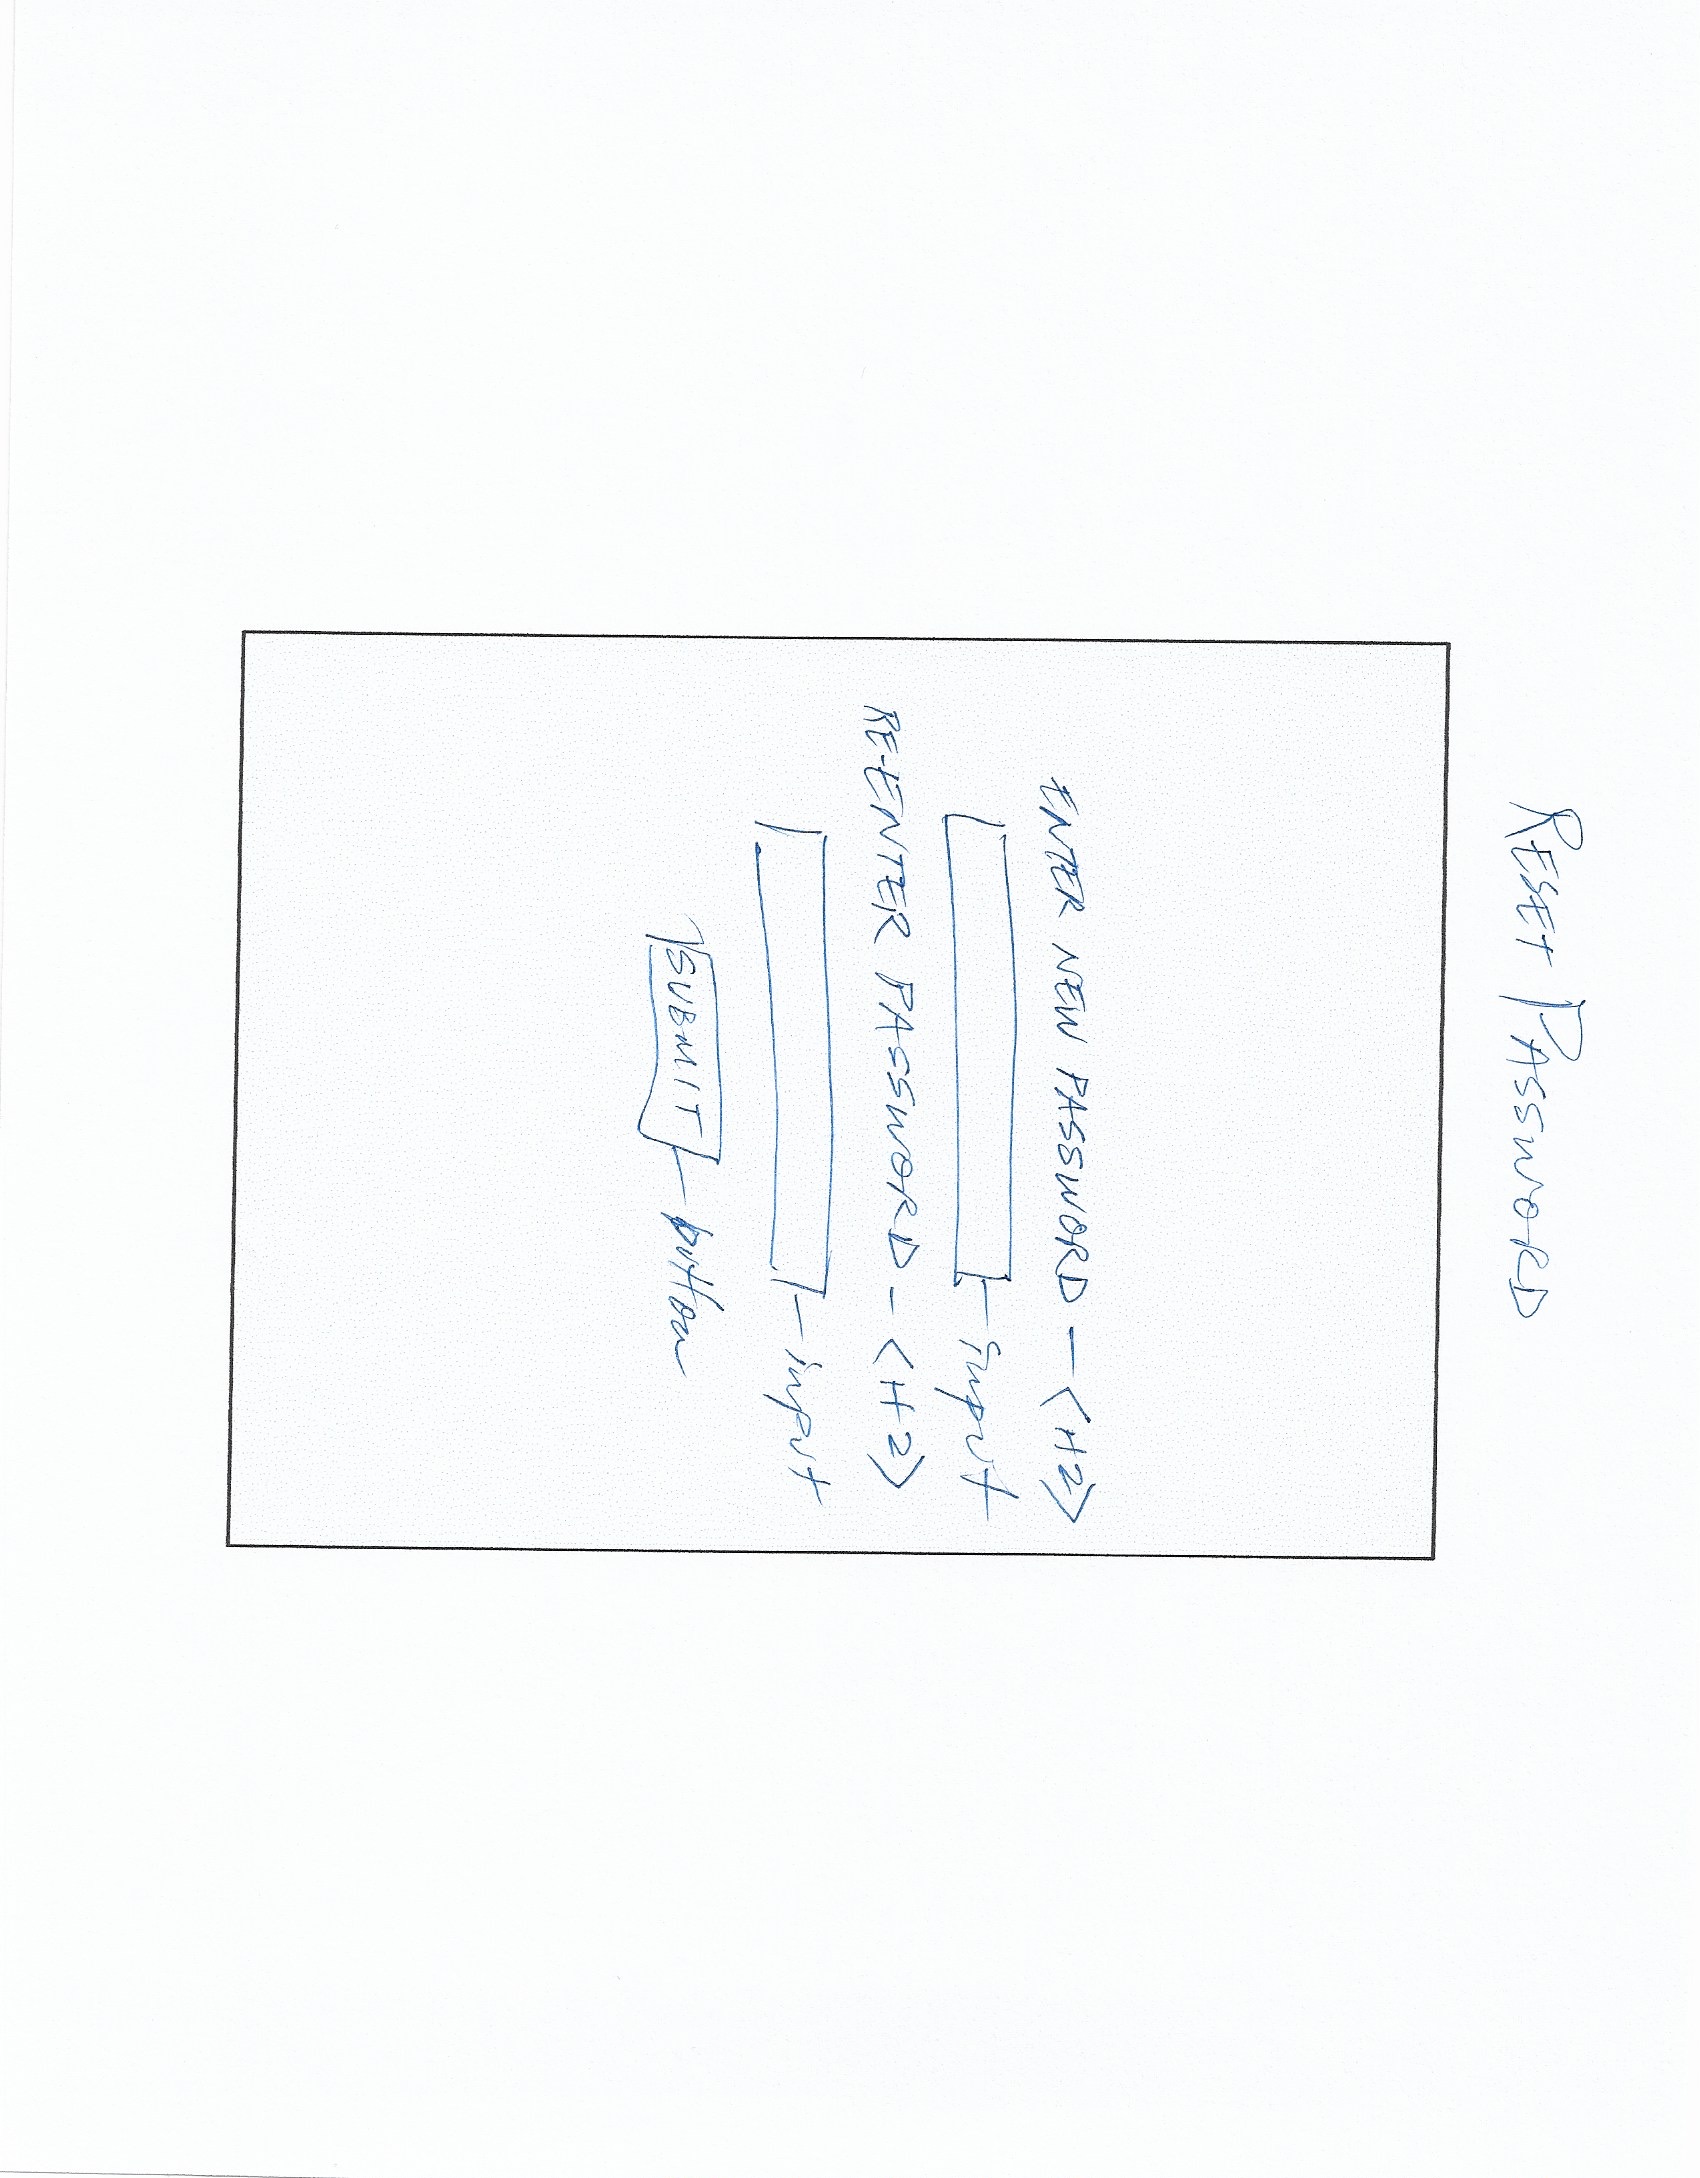 RESET PASSWORD
ENTER NEW PASSWORD - <H2>
input
RE-ENTER PASSWORD - <H2>
input
SUBMIT button